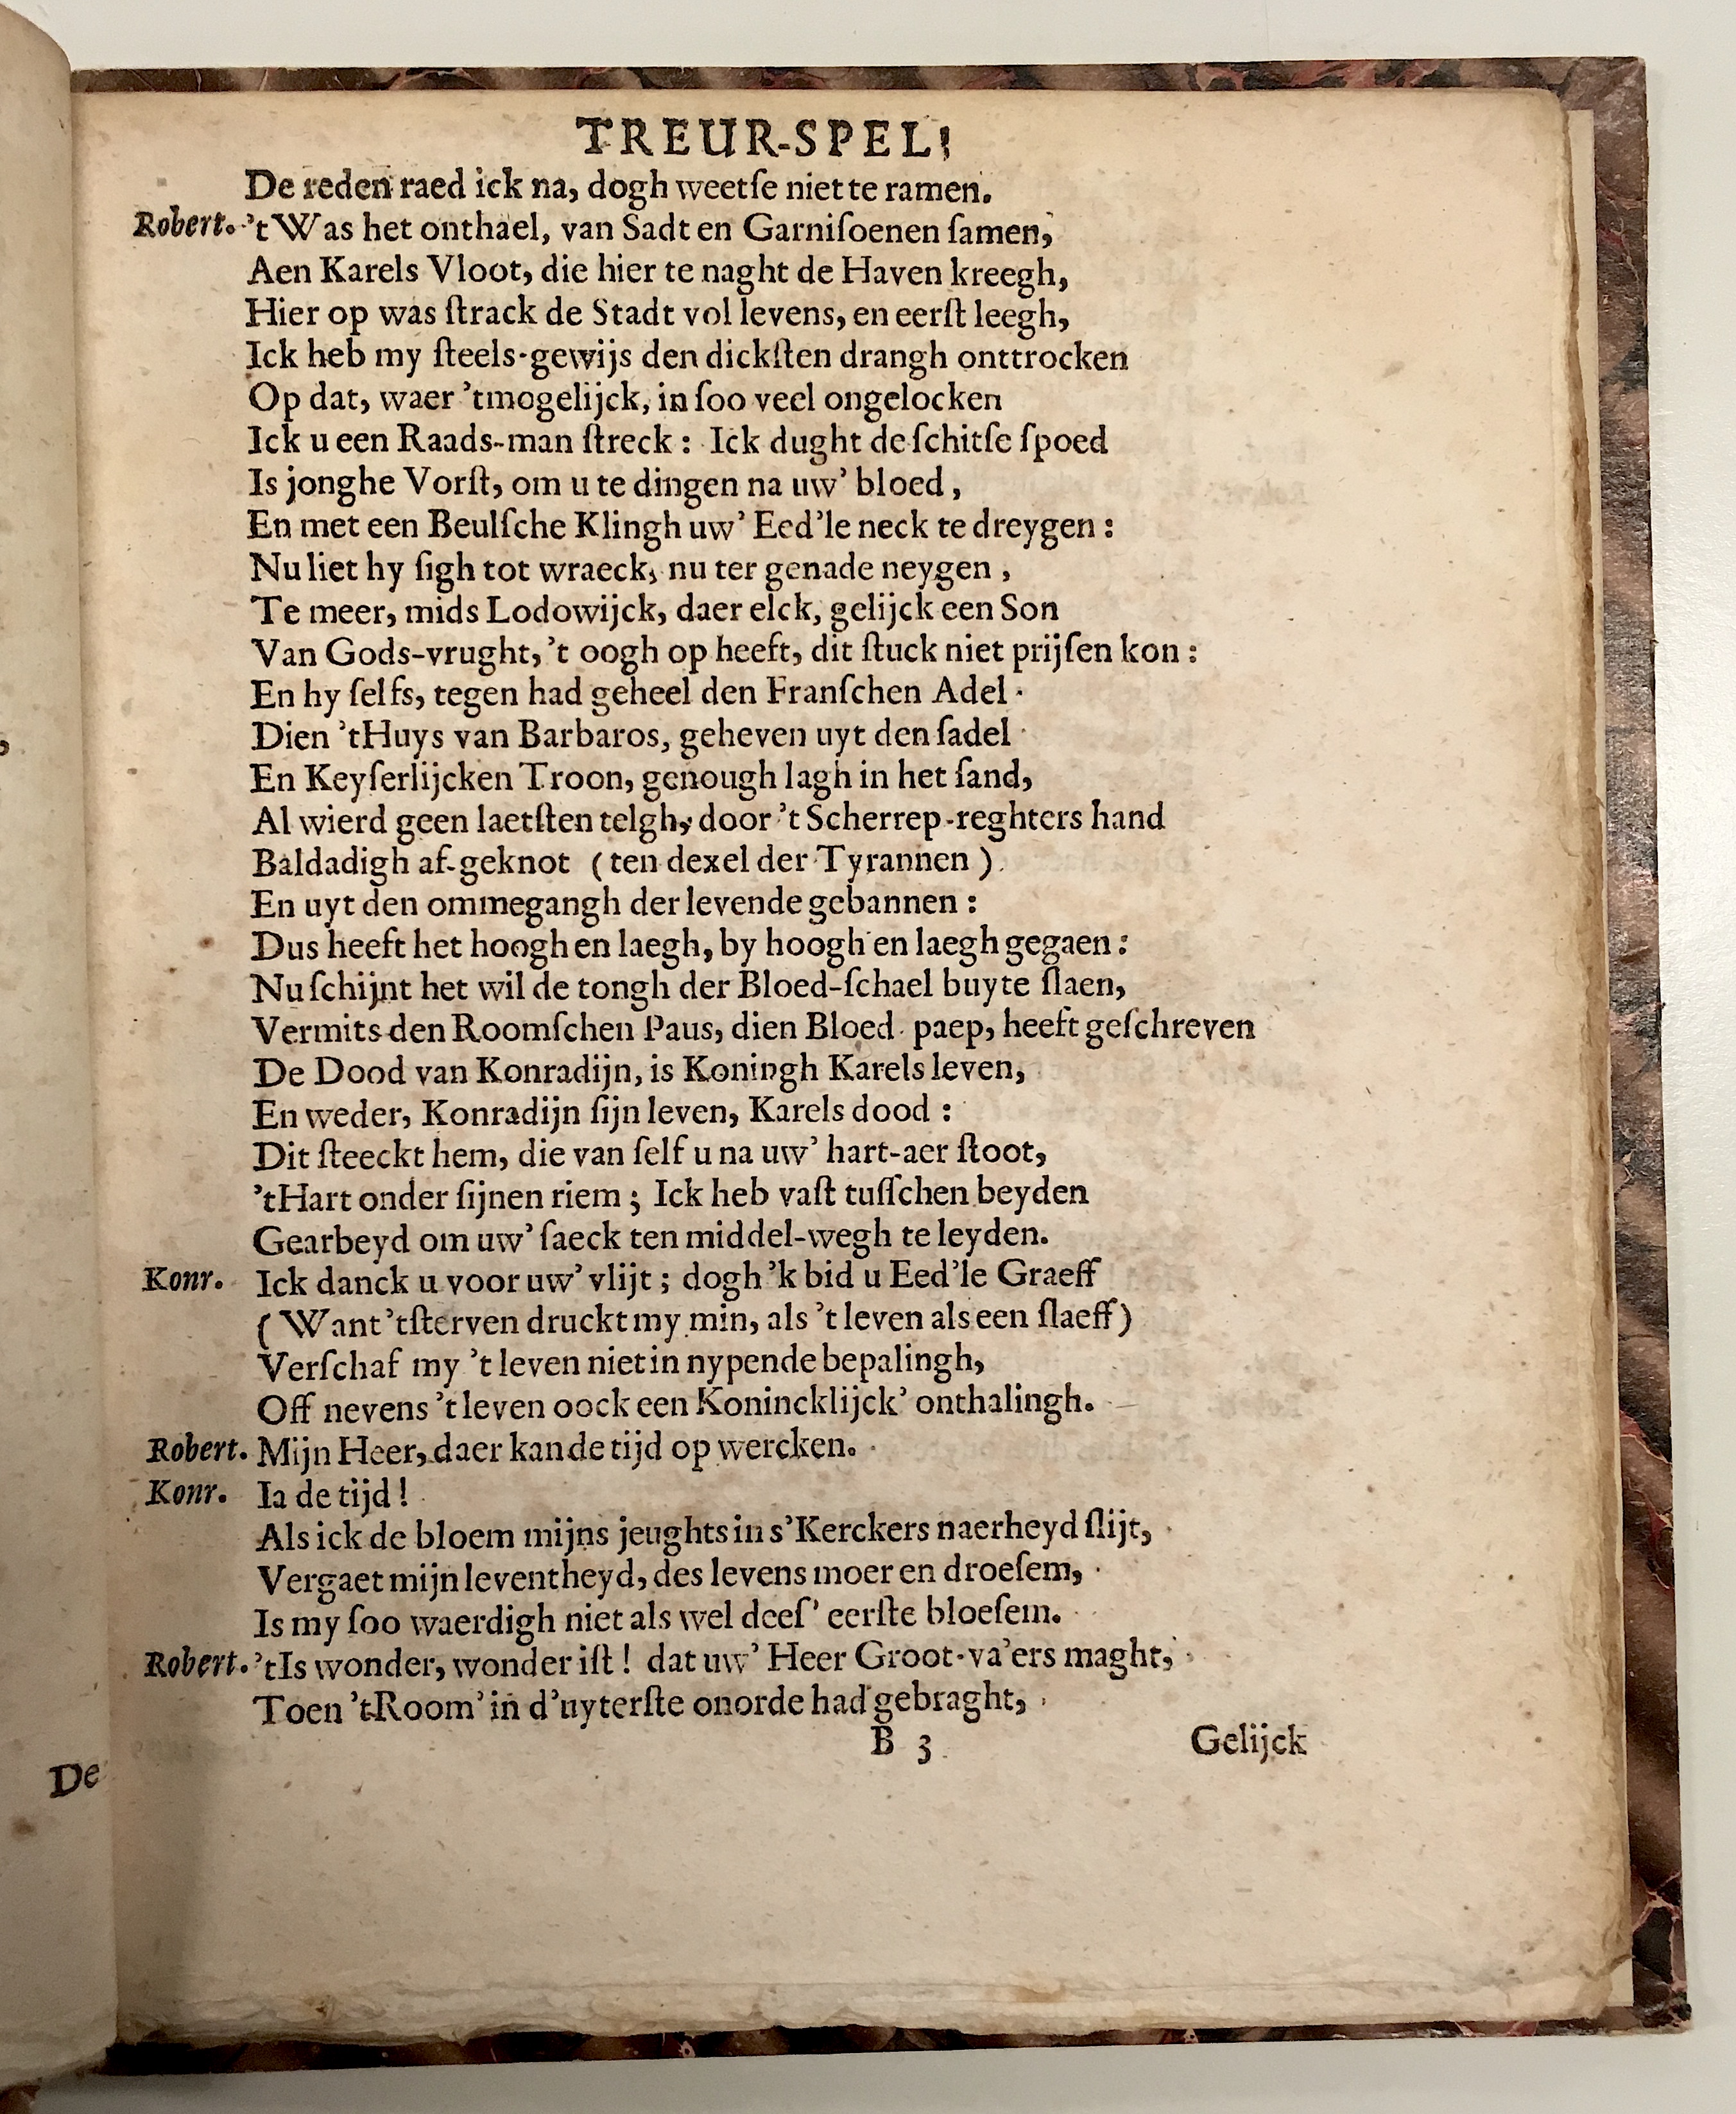 TREUR-SPEL!
De reden raed ick na, dogh weetſe niet te ramen.
Robert. 't Was het onthael, van Sadt en Garniſoenen ſamen,
Aen Karels Vloot, die hier te naght de Haven kreegh,
Hier op was ſtrack de Stadt vol levens, en eerſt leegh,
Ick heb my ſteels-gewijs den dickſten drangh onttrocken
Op dat, waer 'tmogelijck, in ſoo veel ongelocken
Ick u een Raads-man ſtreck : Ick dught de ſchitſe ſpoed
Is jonghe Vorſt, om u te dingen na uw' bloed,
En met een Beulſche Klingh uw' Eed'le neck te dreygen :
Nu liet hy ſigh tot wraeck, nu ter genade neygen,
Te meer, mids Lodowijck, daer elck, gelijck een Son
Van Gods-vrught, 't oogh op heeft, dit ſtuck niet prijſen kon :
En hy ſelfs, tegen had geheel den Franſchen Adel
Dien 'tHuys van Barbaros, geheven uyt den ſadel
En Keyſerlijcken Troon, genough lagh in het ſand,
Al wierd geen laetſten telgh, door 't Scherrep-reghters hand
Baldadigh af-geknot (ten dexel der Tyrannen)
En uyt den ommegangh der levende gebannen :
Dus heeft het hoogh en laegh, by hoogh en laegh gegaen :
Nu ſchijnt het wil de tongh der Bloed-ſchael buyte ſlaen,
Vermits den Roomſchen Paus, dien Bloed-paep, heeft geſchreven
De Dood van Konradijn, is Koningh Karels leven,
En weder, Konradijn ſijn leven, Karels dood :
Dit ſteeckt hem, die van ſelf u na uw' hart-aer ſtoot,
'tHart onder ſijnen riem ; Ick heb vaſt tuſſchen beyden
Gearbeyd om uw' ſaeck ten middel-wegh te leyden.
Konr. Ick danck u voor uw' vlijt ; dogh 'k bid u Eed'le Graeff
( Want 'tſterven druckt my min, als 't leven als een ſlaeff)
Verſchaf my 't leven niet in nypende bepalingh,
Off nevens 't leven oock een Konincklijck' onthalingh.
Robert. Mijn Heer, daer kan de tijd op wercken.
Konr. Ia de tijd !
Als ick de bloem mijns jeughts in s'Kerckers naerheyd ſlijt,
Vergaet mijn leventheyd, des levens moer en droeſem,
Is my ſoo waerdigh niet als wel deeſ' eerſte bloeſem.
Robert. 'tIs wonder, wonder iſt ! dat uw' Heer Groot-va'ers maght,
Toen 't Room' in d'uyterſte onorde had gebraght,
B 3 Gelijck
De